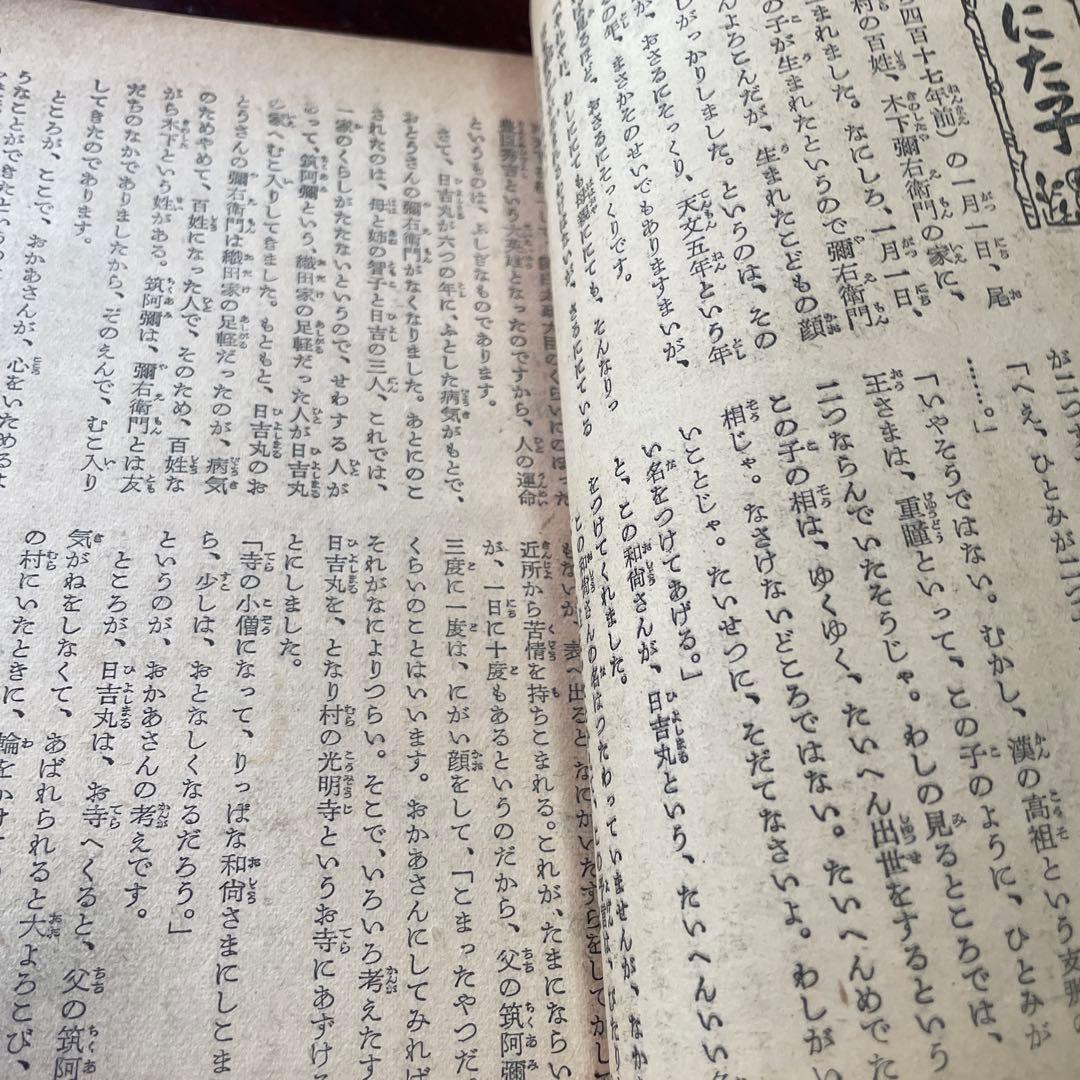 にた子
四百十七年前）の一月一日、尾
村の百姓、木下彌右衛門の家に、
まれました。なにしろ、一月一日、
の子が生まれたというので彌右衛門
んよろこんだが、生まれたこどもの顔
しがっかりしました。というのは、その
が、おさるにそっくり、天文五年という年
の年、まさかそのせいでもありますまいが、
おさるにそっくりです。
が二つ
「へえ、ひとみが二つ
……。」
「いやそうではない。むかし、漢の高祖という支那の
王さまは、重瞳といって、この子のように、ひとみが
二つならんでいたそうじゃ。わしの見るところでは、
この子の相は、ゆくゆく、たいへん出世をするという
相じゃ。なさけないどころではない。たいへんめでた
いことじゃ。たいせつに、そだてなさいよ。わしがい
い名をつけてあげる。」
と、この和尚さんが、日吉丸という、たいへんいい名
をつけてくれました。
豊臣秀吉という大英雄となったのですから、人の運命
というものは、ふしぎなものであります。
さて、日吉丸が六つの年に、ふとした病気がもとで、
おとうさんの彌右衛門がなくなりました。あとにのこ
されたのは、母と姉の智子と日吉の三人、これでは、
一家のくらしがたたないというので、せわする人が
あって、筑阿彌という、織田家の足軽だった人が日吉丸
の家へむこ入りしてきました。もともと、日吉丸のお
とうさんの彌右衛門は織田家の足軽だったのが、病気
のためやめて、百姓になった人で、そのため、百姓な
がら木下という姓がある。筑阿彌は、彌右衛門とは友
だちのなかでありましたから、そのえんで、むこ入り
してきたのであります。
ところが、ここで、おかあさんが、心をいためるよ
うなことができたという
もないが、表へ出ると、なにかいたずらをしてかして
近所から苦情を持ちこまれる。これが、たまにならいい
が、一日に十度もあるというのだから、父の筑阿彌
三度に一度は、にがい顔をして、「こまったやつだ
くらいのことはいいます。おかあさんにしてみれば
それがなによりつらい。そこで、いろいろ考えたす
日吉丸を、となり村の光明寺というお寺にあずける
とにしました。
「寺の小僧になって、りっぱな和尚さまにしこま
ら、少しは、おとなしくなるだろう。」
というのが、おかあさんの考えです。
ところが、日吉丸は、お寺へくると、父の筑阿
気がねをしなくて、あばれられると大よろこび、
の村にいたときに、輪をかけ